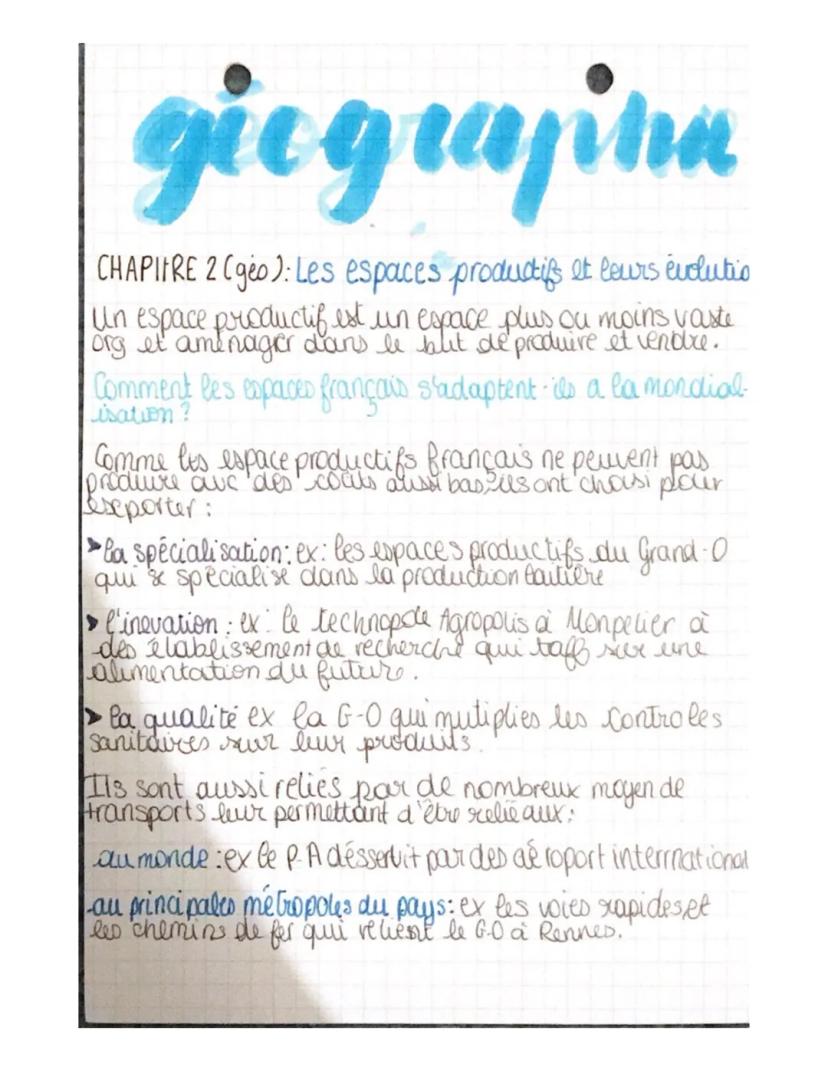 géographi
CHAPITRE 2 (géo): Les espaces productifs et leurs évolutio
Un espace productif est un espace plus ou moins vaste
org et aménager dans le but de produire et vendre.
Comment les espaces français s'adaptent-ils a la mondial-
isation ?
Comme les espace productifs français ne peuvent pas
produire avc des couts aussi bas, ils ont choisi pour
exporter :
➤ la spécialisation: ex: les espaces productifs du Grand-O
qui se spécialise dans la production laitière
➤ l'inovation : ex: le technopole Agropolis à Monpelier à
des élablissement de recherche qui taff sur une
alimentation du future.
➤ la qualité ex la G-O qui mutiplies les controles
sanitaires sur leur produits.
Ils sont aussi reliés par de nombreux moyen de
transports leur permettant d'être relié aux:
au monde : ex le P-A déssérvit par des aéroport interrnational
-au principales métropoles du pays: ex les voies rapides et
les chemins de fer qui relient le G-O à Rennes.